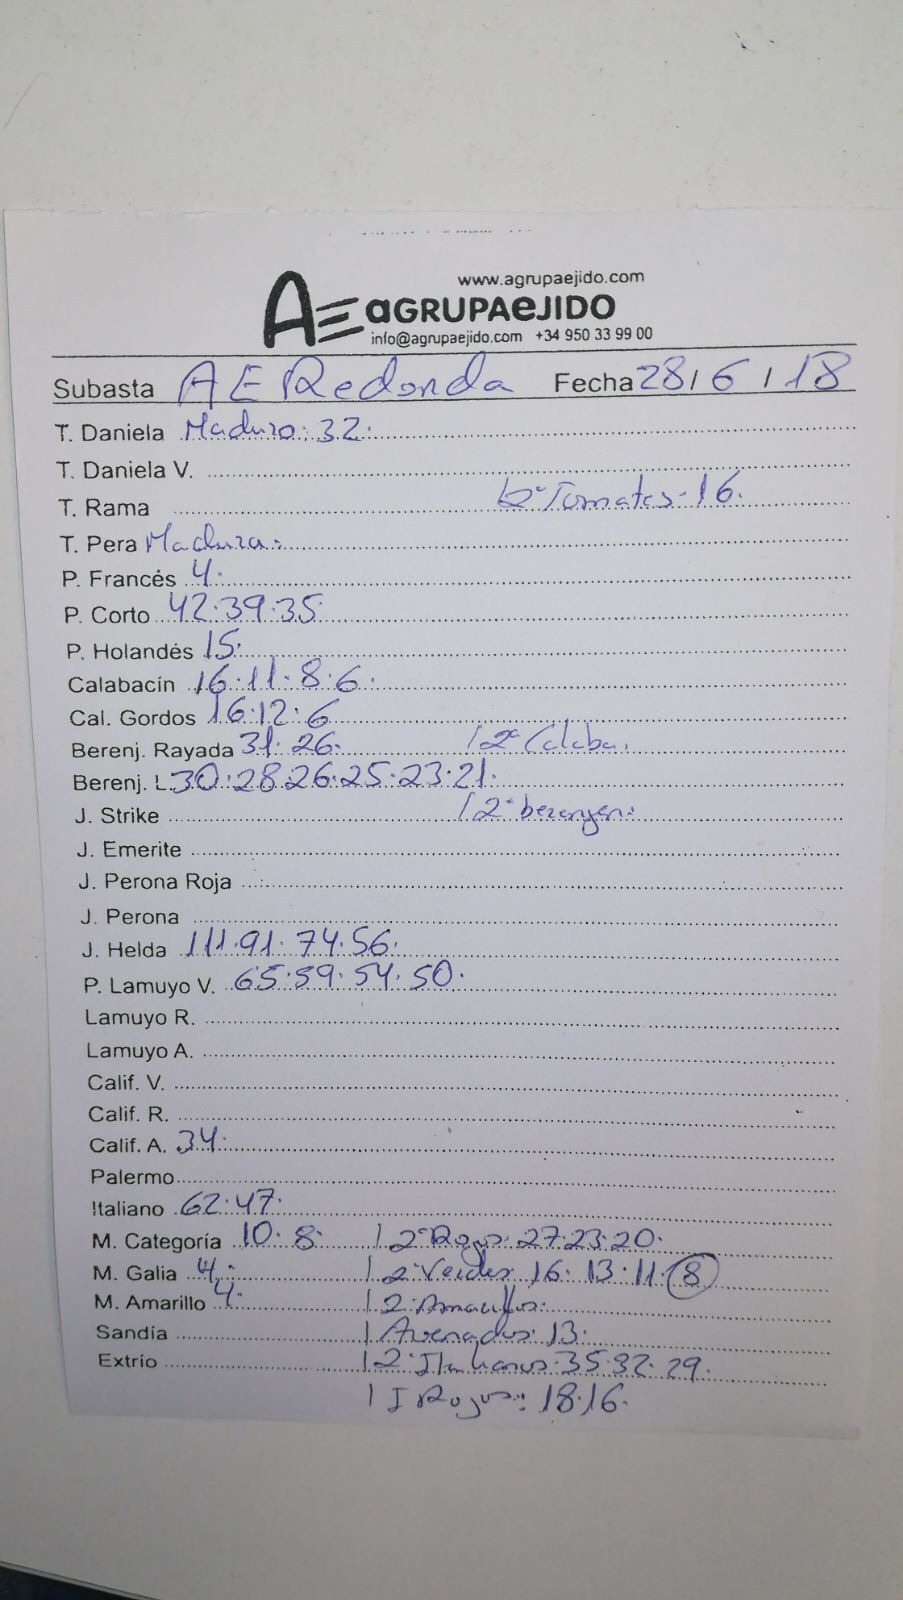 www.agrupaejido.com
AE aGRUPAeJIDO
info@agrupaejido.com +34 950 33 99 00
Subasta AE Redonda Fecha 28 / 6 / 18
T. Daniela Maduro: 32.
T. Daniela V.
T. Rama 2ª Tomates. 16.
T. Pera Madura.
P. Francés 4.
P. Corto 42.39.35.
P. Holandés 15.
Calabacín 16.11.8.6.
Cal. Gordos 16.12.6
Berenj. Rayada 31.26. / 2ª Calaba.
Berenj. L. 30.28.26.25.23.21.
J. Strike / 2ª berenjen:
J. Emerite
J. Perona Roja
J. Perona
J. Helda 111.91.74.56.
P. Lamuyo V. 65.59.54.50.
Lamuyo R.
Lamuyo A.
Calif. V.
Calif. R.
Calif. A. 34.
Palermo
Italiano 62.47.
M. Categoría 10.8. / 2ª Rojos. 27.23.20.
M. Galia 4. / 2ª Verdes 16.13.11.8
M. Amarillo 4. / 2ª Amarillos.
Sandía / Asenados: 13.
Extrío / 2ª Italianos. 35.32.29.
/ I Rojos: 18.16.